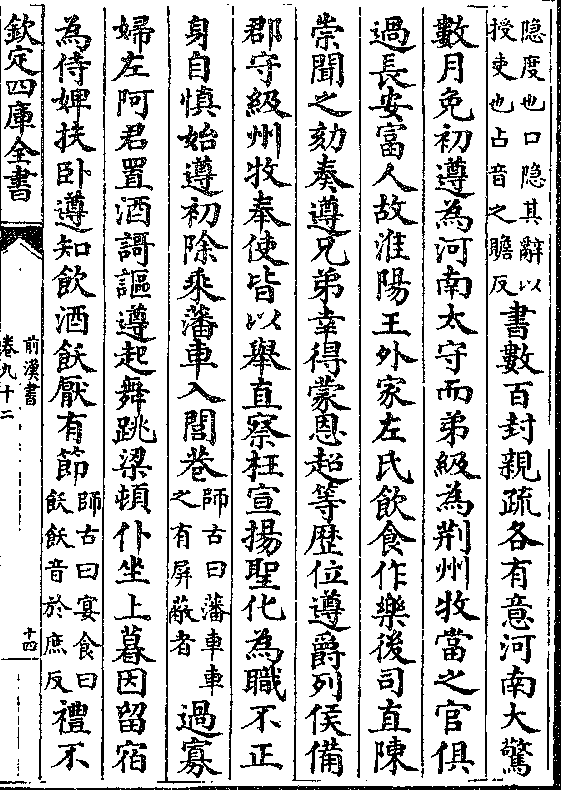 隐度也口隐其辭以
授吏也占音之贍反
書數百封親疏各有意河南大驚
數月免初遵為河南太守而弟級為荆州牧當之官俱
過長安富人故淮陽王外家左氏飲食作樂後司直陳
崇聞之劾奏遵兄弟幸得蒙恩超等歴位遵爵列侯備
郡守級州牧奉使皆以舉直察枉宣揚聖化為職不正
身自慎始遵初除乘藩車入閭巷
師古曰藩車車
之有屏蔽者
過寡
婦左阿君置酒謌謳遵起舞跳梁頓仆坐上暮因留宿
為侍婢扶卧遵知飲酒飫厭有節
師古曰宴食曰
飫飫音於庶反
禮不
欽定四庫全書
前漢書
卷九十二
十四